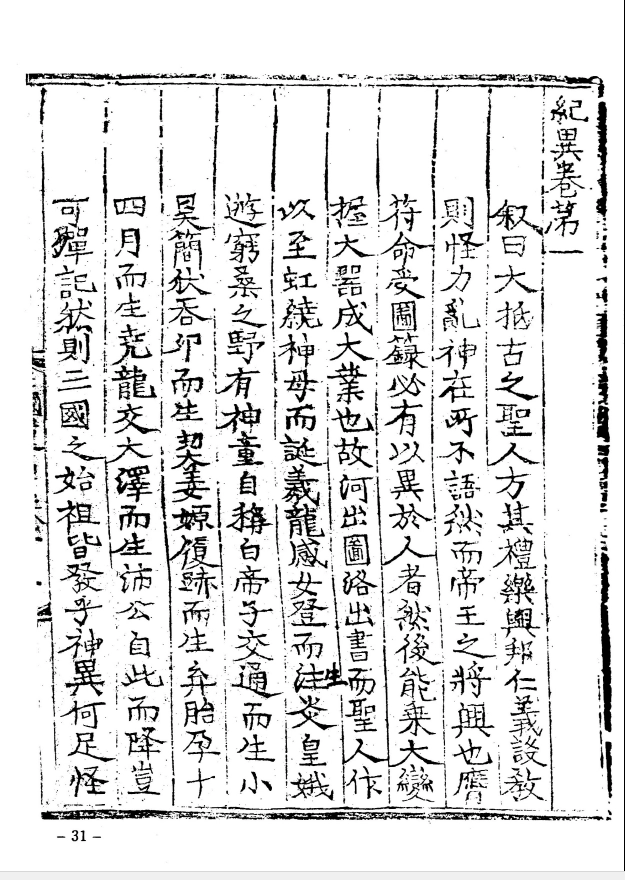 紀異卷第一
叙曰大抵古之聖人方其禮樂興邦仁義設教
則怪力亂神在所不語然而帝王之將興也膺
符命受圖籙必有以異於人者然後能乘大變
握大器成大業也故河出圖洛出書而聖人作
以至虹繞神母而誕羲龍感女登而注生炎皇娥
遊窮桑之野有神童自稱白帝子交通而生小
昊簡狄吞卵而生契姜嫄履跡而生弃胎孕十
四月而生堯龍交大澤而生沛公自此而降豈
可殫記然則三國之始祖皆發乎神異何足怪
- 31 -